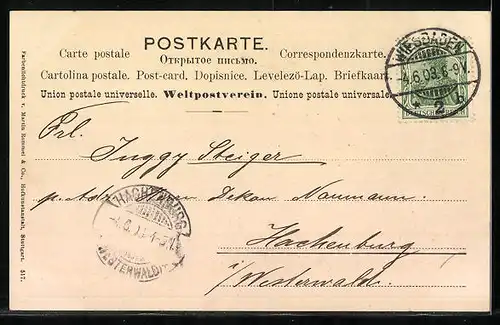 POSTKARTE.
Carte postale Открытое письмо. Correspondenzkarte.
Cartolina postale. Post-card. Dopisnice. Levelező-Lap. Briefkaart.
Union postale universelle. Weltpostverein. Unione postale universale.
WIESBADEN
4.6.03. 8-9V.
* 2 b
Frl. Inggy Steiger
Dekan Naumann.
HACHENBURG
(WESTERWALD)
Hachenburg
i/Westerwald.
Farbenlichtdruck v. Martin Rommel & Co., Hofkunstanstalt, Stuttgart. 517.